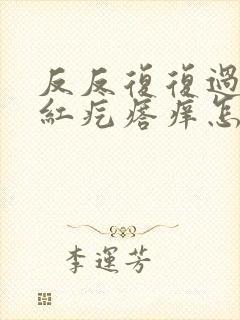 反反復復過
紅疙瘩癢怎
李運芳